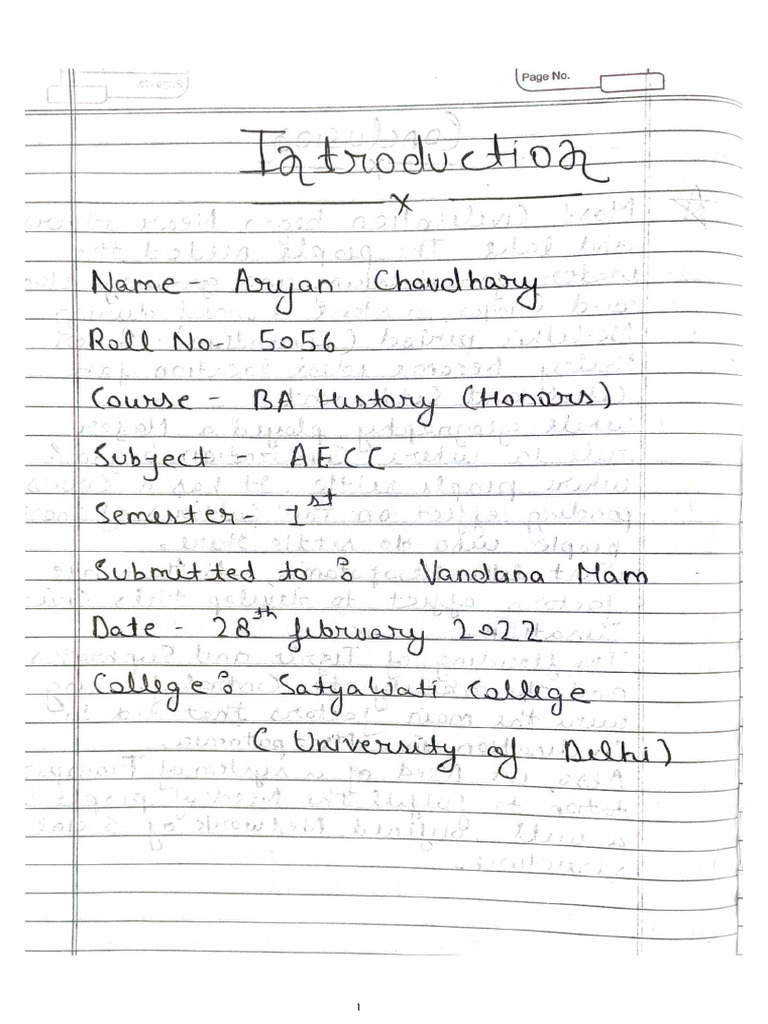 Page No.
Introduction
x
Name - Aryan Chaudhary
Roll No- 5056
Course - BA History (Honars)
Subject - AECC
Semester- 1st
Submitted to : Vandana Mam
Date - 28th februrary 2022
College : Satyawati College
( University of Delhi)
1